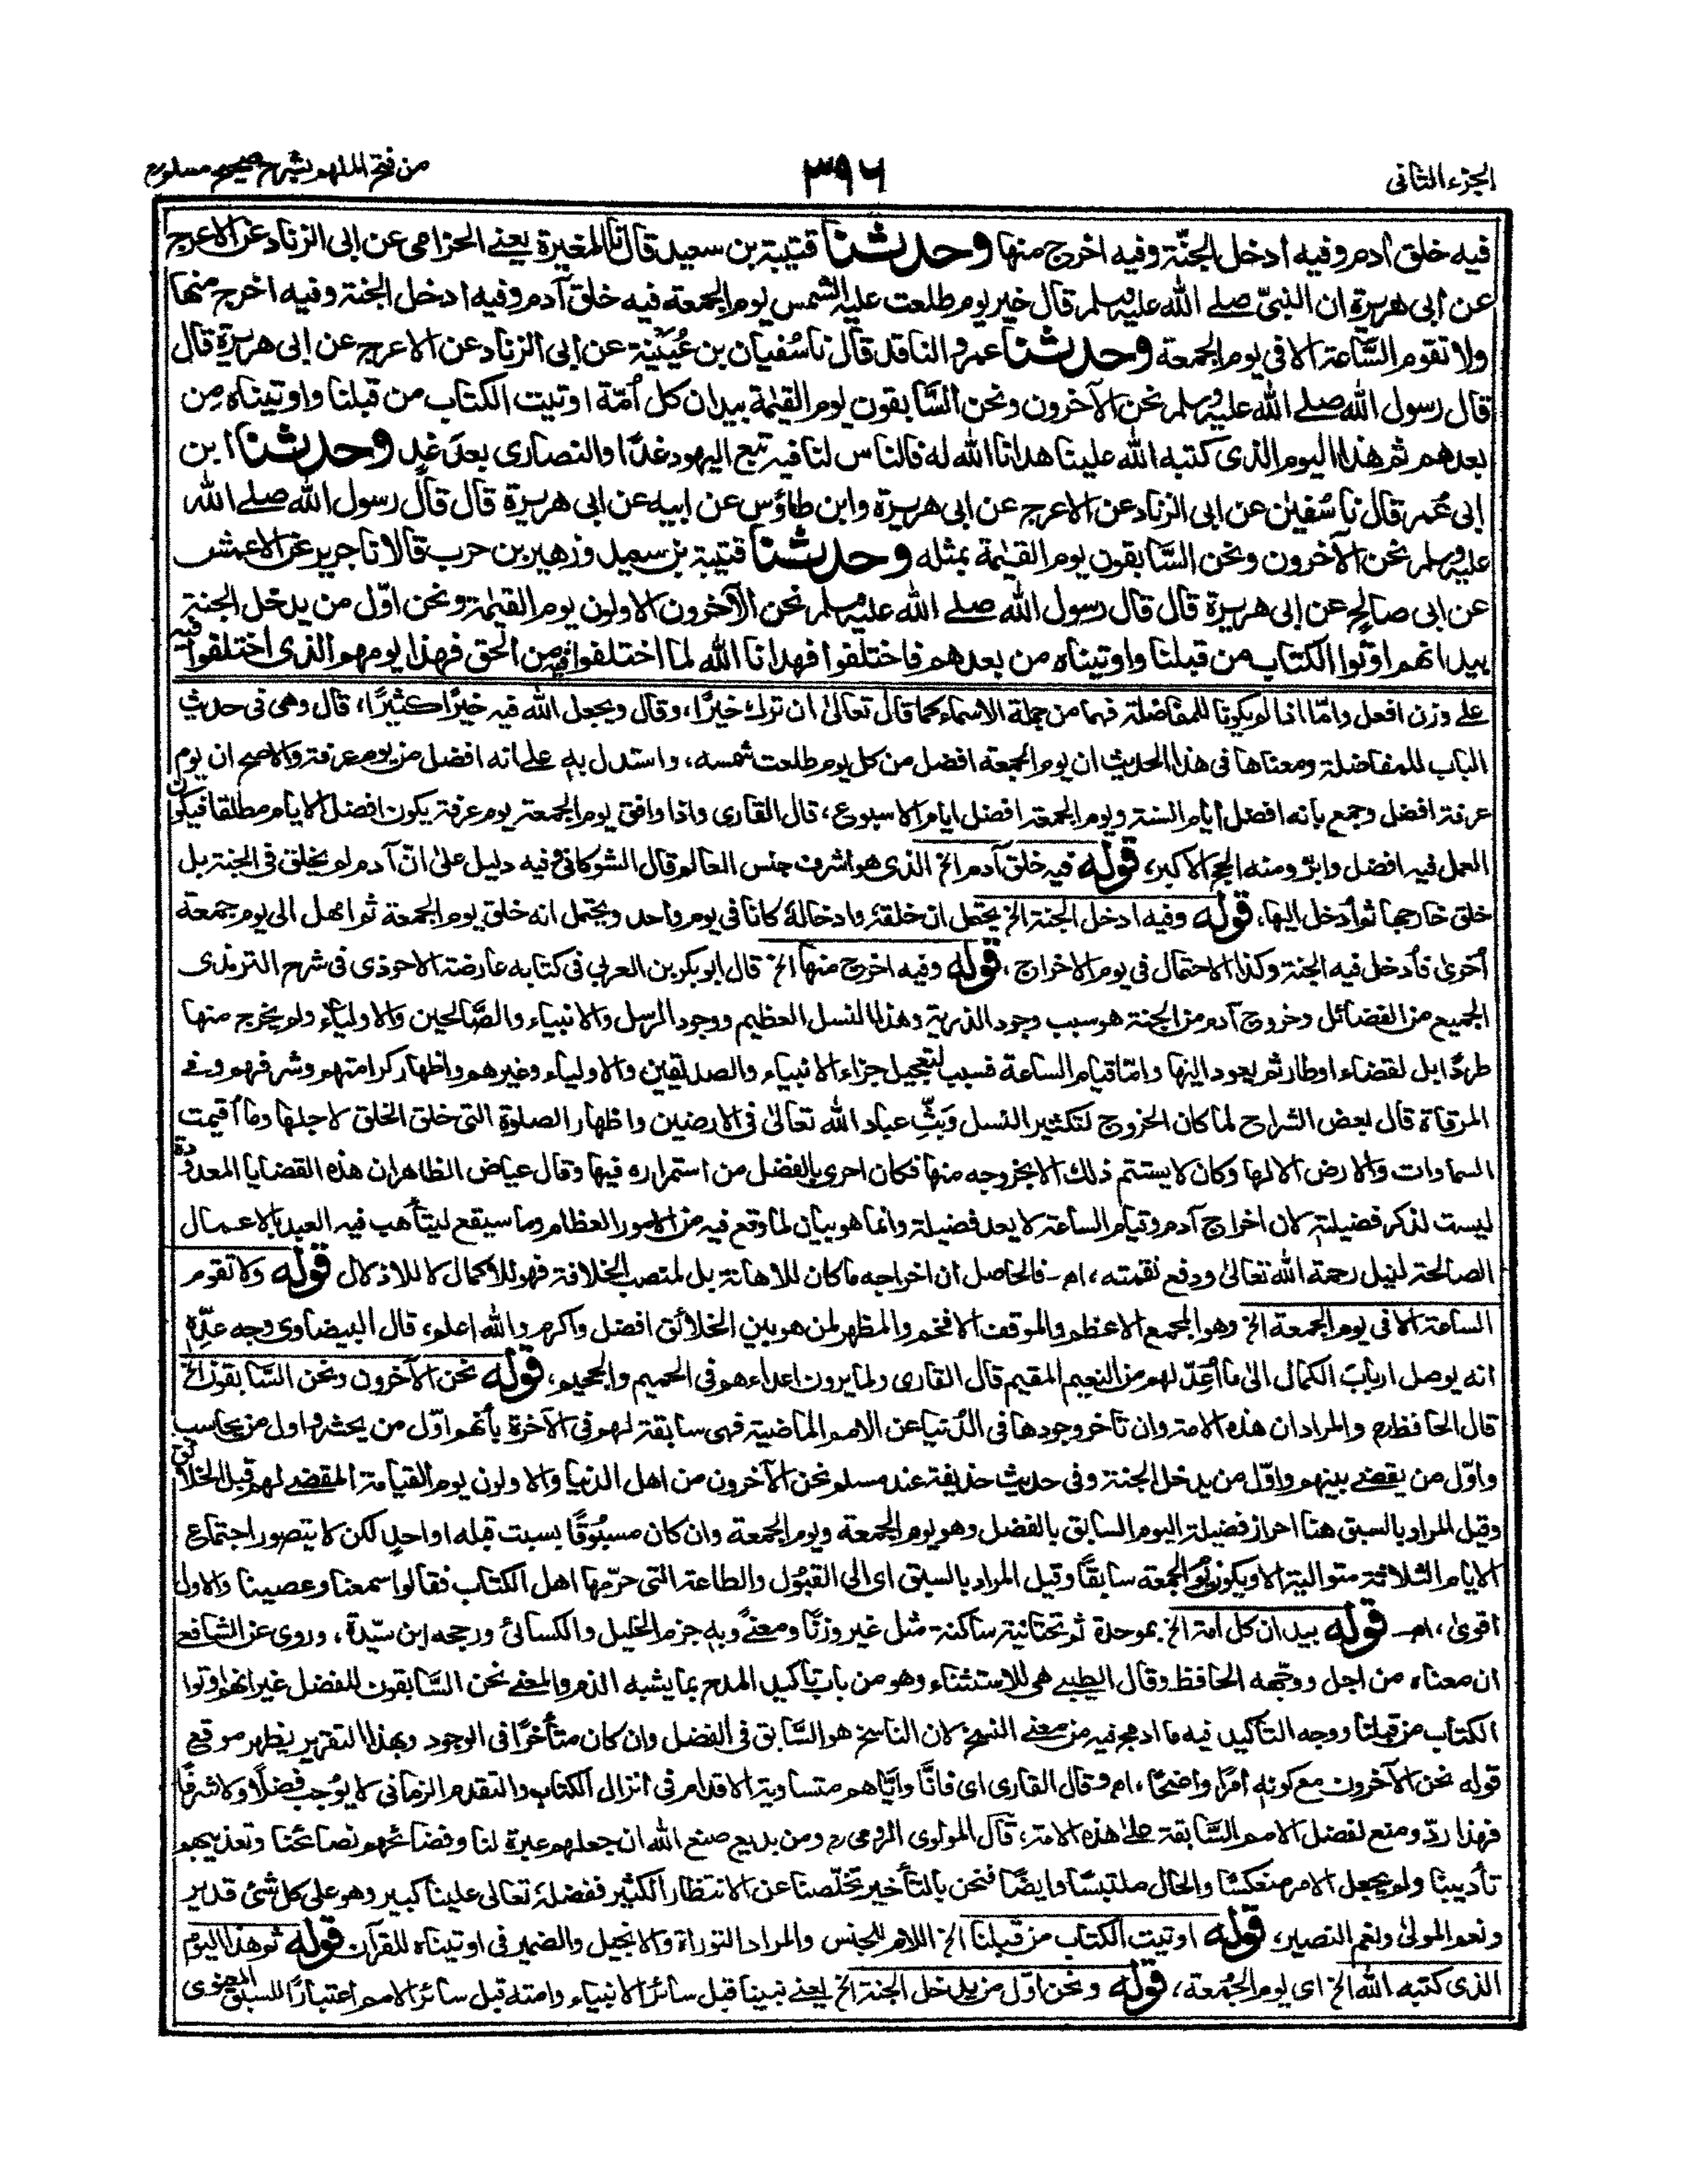 الجزء الثانى
٣٩٦
من فتح الملهم بشرح صحيح مسلم
فيه خلق آدم وفيه أدخل الجنّة وفيه اخرج منها وحدثنا قتيبة بن سعيد قال نا المغيرة يعنے الحزامى عن ابى الزناد عن الاعرج
عن ابى هريرة ان النبىّ صلے الله عليه وسلم قال خير يوم طلعت عليه الشمس يوم الجمعة فيه خلق آدم وفيه ادخل الجنة وفيه اخرج منها
ولا تقوم السَّاعة الا فى يوم الجمعة وحدثنا عمرو الناقد قال نا سُفيان بن عُيَيْنة عن ابى الزناد عن الاعرج عن ابى هريرة قال
قال رسول الله صلے الله عليه وسلم نحن الآخرون ونحن السَّابقون يوم القيٰمة بيد ان كل اُمّة اوتيت الكتاب من قبلنا واوتيناه مِن
بعدهم ثم هذا اليوم الذى كتبه الله علينا هدانا الله له فالناس لنا فيه تبع اليهود غدًا والنصارى بعدَ غدٍ وحدثنا ابن
ابى عُمر قال نا سُفيٰن عن ابى الزناد عن الاعرج عن ابى هريرة وابن طاؤس عن ابيه عن ابى هريرة قال قال رسول الله صلے الله
عليه وسلم نحن الآخرون ونحن السَّابقون يوم القيٰمة بمثله وحدثنا قتيبة بن سعيد وزهير بن حرب قالا نا جرير عن الاعمش
عن ابى صالح عن ابى هريرة قال قال رسول الله صلے الله عليه وسلم نحن الآخرون الاولون يوم القيٰمة ونحن اوّل من يدخل الجنة
بيد انهم اوتوا الكتاب من قبلنا واوتيناه من بعدهم فاختلفوا فهدانا الله لما اختلفوا فيه من الحق فهذا يومهم الذى اختلفوا فيه
علے وزن افعل وامّا اذا لم يكونا للمفاضلة فهما من جملة الاسماء كما قال تعالىٰ ان ترك خيرًا، وقال ويجعل الله فيه خيرًا كثيرًا، قال وهى فى حديث
الباب للمفاضلة ومعناها فى هذا الحديث ان يوم الجمعة افضل من كل يوم طلعت شمسه، واستدل به علے انه افضل من يوم عرفة والاصح ان يوم
عرفة افضل وجمع بانه افضل أيام السنة ويوم الجمعة افضل ايام الاسبوع، قال القارى واذا وافق يوم الجمعة يوم عرفة يكون افضل الايام مطلقا فيكون
العمل فيه افضل وابرّ ومنه الحج الاكبر، قوله فيه خلق آدم الخ الذى هو اشرف جنس العالم قال الشوكانى وفيه دليل علىٰ انّ آدم لم يخلق فى الجنة بل
خلق خارجها ثم أدخل اليها، قوله وفيه ادخل الجنة الخ يحتمل ان خلقه وادخاله كانا فى يوم واحد ويحتمل انه خلق يوم الجمعة ثم امهل الى يوم جمعة
اُخرىٰ فأدخل فيه الجنة وكذا الاحتمال فى يوم الاخراج، قوله وفيه اخرج منها الخ قال ابو بكر بن العربى فى كتابه عارضة الاحوذى فى شرح الترمذى
الجميع من الفضائل وخروج آدم من الجنة هو سبب وجود الذرية وهذا النسل العظيم ووجود الرسل والانبياء والصَّالحين والاولياء ولم يخرج منها
طردًا بل لقضاء اوطار ثم يعود اليها وامّا قيام الساعة فسبب لتعجيل جزاء الانبياء والصديقين والاولياء وغيرهم واظهار كرامتهم وشرفهم وفے
المرقاة قال بعض الشراح لما كان الخروج لتكثير النسل وَبثّ عباد الله تعالىٰ فى الارضين واظهار الصلوة التى خلق الخلق لاجلها وما أقيمت
السماوات والارض الا لها وكان لا يستتم ذلك الا بخروجه منها فكان احرى بالفضل من استمراره فيها وقال عياض الظاهر ان هذه القضايا المعدودة
ليست لذكر فضيلته لان اخراج آدم وقيام الساعة لا يعد فضيلة وانما هو بيان لما وقع فيه من الامور العظام وما سيقع ليتأهب فيه العبد بالاعمال
الصالحة لنيل رحمة الله تعالىٰ ودفع نقمته، اهـ فالحاصل ان اخراجه ما كان للاهانة بل لمنصب الخلافة فهو للاكمال لا للاذلال قوله ولا تقوم
الساعة الا فى يوم الجمعة الخ وهو المجمع الاعظم والموقف الافخم والمظهر لمن هو بين الخلائق افضل واكرم والله اعلم، قال البيضاوى وجه عدّه
انه يوصل ارباب الكمال الىٰ ما اُعِدّ لهم من النعيم المقيم قال القارى ولما يرون اعداءهم فى الحميم والجحيم، قوله نحن الآخرون ونحن السَّابقون الخ
قال الحافظ رح والمراد ان هذه الامة وان تأخر وجودها فى الدُنيا عن الامم الماضية فهى سابقة لهم فى الآخرة بأنهم اوّل من يحشر واول من يحاسب
واوّل من يقضے بينهم واوّل من يدخل الجنة وفى حديث حذيفة عند مسلم نحن الآخرون من اهل الدنيا والاولون يوم القيامة المقضے لهم قبل الخلائق
وقيل المراد بالسبق هنا احراز فضيلة اليوم السابق بالفضل وهو يوم الجمعة ويوم الجمعة وان كان مسبُوقًا بسبت قبله او احدٍ لكن لا يتصور اجتماع
الايام الثلاثة متوالية الا ويكون يوم الجمعة سابقًا وقيل المراد بالسبق اى الى القبُول والطاعة التى حرّمها اهل الكتاب فقالوا سمعنا وعصينا والاول
اقوىٰ، اهـ قوله بيد ان كل امة الخ بموحدة ثم تحتانية ساكنة مثل غير وزنًا ومعنًے وبه جزم الخليل والكسائى ورجحه ابن سيّدة، وروى عن الشافعے
ان معناه من اجل ووجّهه الحافظ وقال الطيبے هى للاستثناء وهو من باب تاكيد المدح بما يشبه الذم والمعنے نحن السَّابقون للفضل غير انهم اوتوا
الكتاب من قبلنا ووجه التأكيد فيه ما ادمج فيه من معنے النسخ لان الناسخ هو السَّابق فى الفضل وان كان متأخرًا فى الوجود وبهذا التقرير يظهر موقع
قوله نحن الآخرون مع كونه امرًا واضحًا، اهـ وقال القارى اى فانَّا وايَّاهم متساوية الاقدام فى انزال الكتاب والتقدم الزمانى لا يوُجب فضلًا ولا شرفًا
فهذا ردّ ومنع لفضل الامم السَّابقة علے هذه الامة، قال المولوى الرومى رح ومن بديع صنع الله ان جعلهم عبرة لنا وفضائحهم نصائحنا وتعذيبهم
تأديبنا ولم يجعل الامر منعكسًا والحال ملتبسًا وايضًا فنحن بالتأخير تخلّصنا عن الانتظار الكثير ففضله تعالى علينا كبير وهو على كل شئ قدير
ونعم المولىٰ ونعم النصير، قوله اوتيت الكتاب من قبلنا الخ اللام للجنس والمراد التوراة والانجيل والضمير فى اوتيناه للقرآن قوله ثم هذا اليوم
الذى كتبه الله الخ اى يوم الجُمعة، قوله ونحن اوّل من يدخل الجنة الخ يعنے نبينا قبل سائر الانبياء وامته قبل سائر الامم اعتبارًا للسبق المعنوى